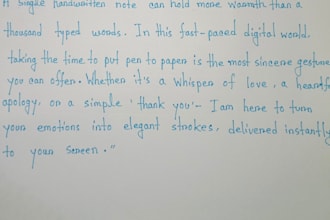 A single handwritten note can hold more warmth than a
thousand typed words. In this fast-paced digital world,
taking the time to put pen to paper is the most sincere gesture
you can offer. Whether it's a whisper of love, a heartfe
apology, or a simple 'thank you'- I am here to turn
your emotions into elegant strokes, delivered instantly
to your screen."